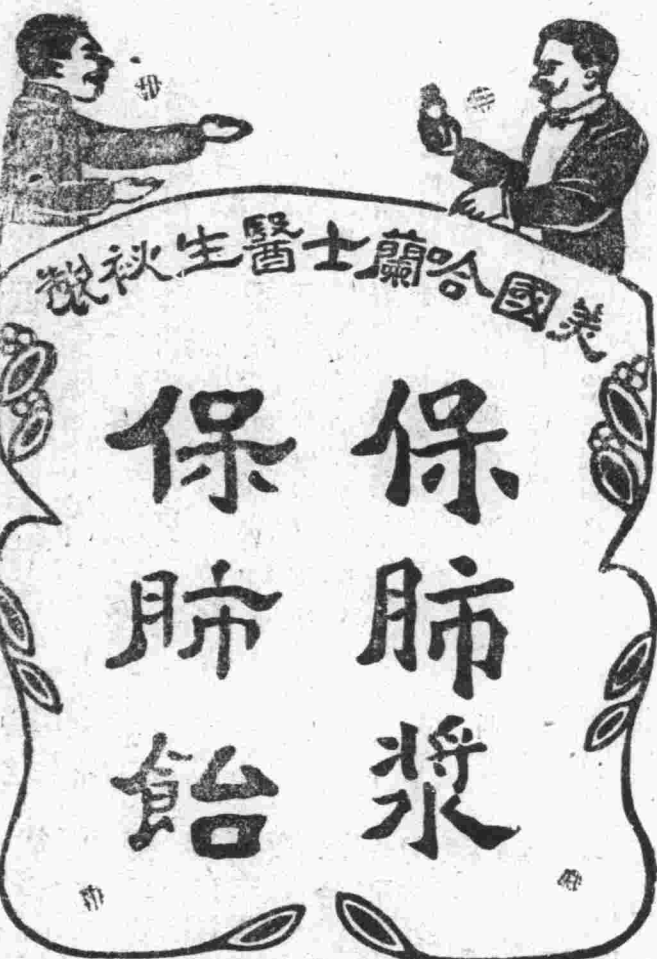 美國哈蘭士醫生祕製
保肺漿
保肺飴